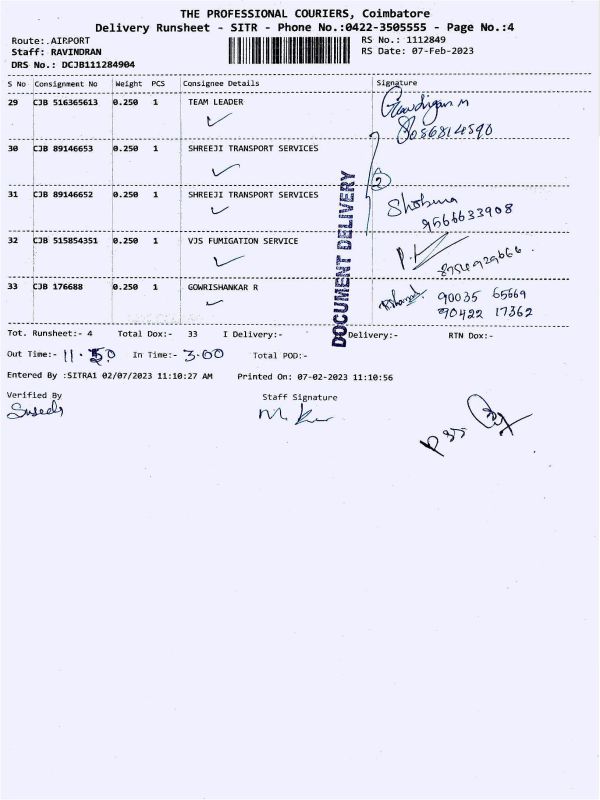 THE PROFESSIONAL COURIERS, Coimbatore
Delivery Runsheet - SITR - Phone No.:0422-3505555 - Page No.:4
Route:.AIRPORT RS No.: 1112849
Staff: RAVINDRAN RS Date: 07-Feb-2023
DRS No.: DCJB111284904
S No Consignment No Weight PCS Consignee Details Signature
29 CJB 516365613 0.250 1 TEAM LEADER
8056814590
30 CJB 89146653 0.250 1 SHREEJI TRANSPORT SERVICES
2
31 CJB 89146652 0.250 1 SHREEJI TRANSPORT SERVICES Shobana
9566633908
32 CJB 515854351 0.250 1 VJS FUMIGATION SERVICE
33 CJB 176688 0.250 1 GOWRISHANKAR R 90035 65669
90422 17362
DOCUMENT DELIVERY
Tot. Runsheet:- 4 Total Dox:- 33 I Delivery:- Delivery:- RTN Dox:-
Out Time:- 11.50 In Time:- 3.00 Total POD:-
Entered By :SITRA1 02/07/2023 11:10:27 AM Printed On: 07-02-2023 11:10:56
Verified By Staff Signature